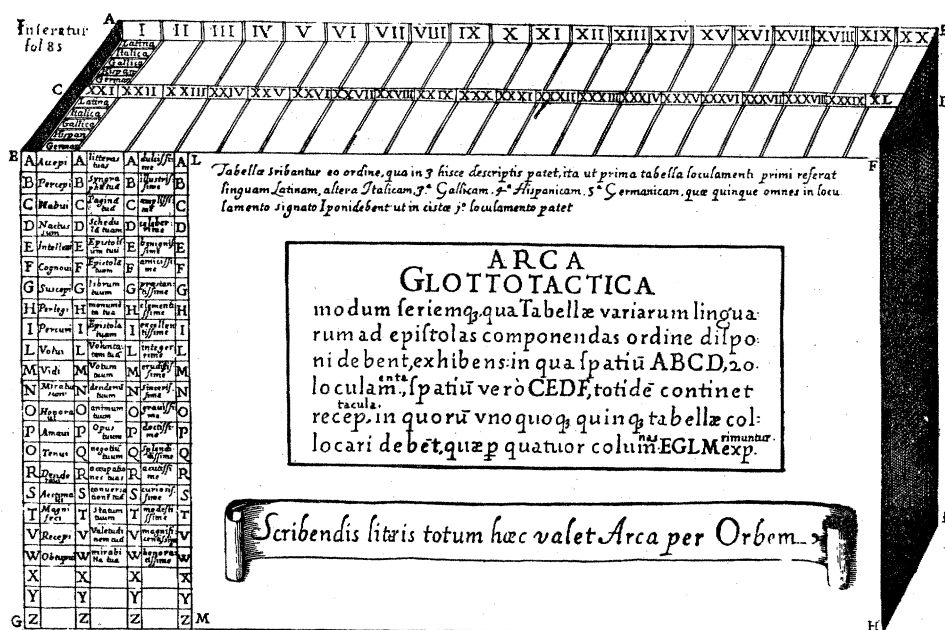 Inseratur
fol 85
A
I II III IV V VI VII VIII IX X XI XII XIII XIV XV XVI XVII XVIII XIX XX
Latina
Italica
Gallica
Hispan
German
C XXI XXII XXIII XXIV XXV XXVI XXVII XXVIII XXIX XXX XXXI XXXII XXXIII XXXIV XXXV XXXVI XXXVII XXXVIII XXXIX XL
Latina
Italica
Gallica
Hispan
German
E F
A Accepi A litteras tuas A dulcissi me A L
B Percepi B Syngra phā tuā B illustris sime B
C Habui C Pagind tud C amplissi me C
D Nactus sum D Schedu lā tuam D D
E E Epistoli um tuū E benignis sime E
F Cognoui F Epistola tuum F amicissi me F
G Suscepi G librum tuum G præstan tissime G
H Perlegi H monumē ta tua H clementi ssime H
I Percurri I Epistola tuam I excellen tissime I
L Votus L Volunta tem tuā L integer rime L
M Vidi M Votum tuum M erudissi me M
N Miratus sum N tuum N sinceris sime N
O Honora ui O animum tuum O grauissi me O
P Amaui P Opus tuum P doctissi me P
Q Tenui Q negotiū tuum Q splendi dissime Q
R R occupatio nes tuas R acutissi me R
S S S curiosis sime S
T Magni feci T statum tuum T modesti ssime T
V Recepi V Valetudi nem tuā V V
W W mirabi lia tua W honora tissime W
X X X X
Y Y Y Y
G Z Z Z Z M H
Tabellæ sribantur eo ordine, qua in 3 hisce descriptis patet, ita ut prima tabella loculamenti primi referat
linguam Latinam, altera Italicam, 3ᵃ Gallicam, 4ᵃ Hispanicam, 5ᵃ Germanicam, quæ quinque omnes in locu
lamento signato I ponidebent ut in cistæ jº loculamento patet
ARCA
GLOTTOTACTICA
modum seriemq₃, qua Tabellæ variarum lingua:
rum ad epistolas componendas ordine dispo:
ni debent, exhibens: in qua spatiū ABCD, 20.
loculam.enta, spatiū verò CEDF, totidē continet
recep.tacula; in quorū vnoquoq₃ quinq₃ tabellæ col:
locari debēt, quæ p quatuor colum.nas EGLM exp.rimuntur.
Scribendis litris totum hæc valet Arca per Orbem